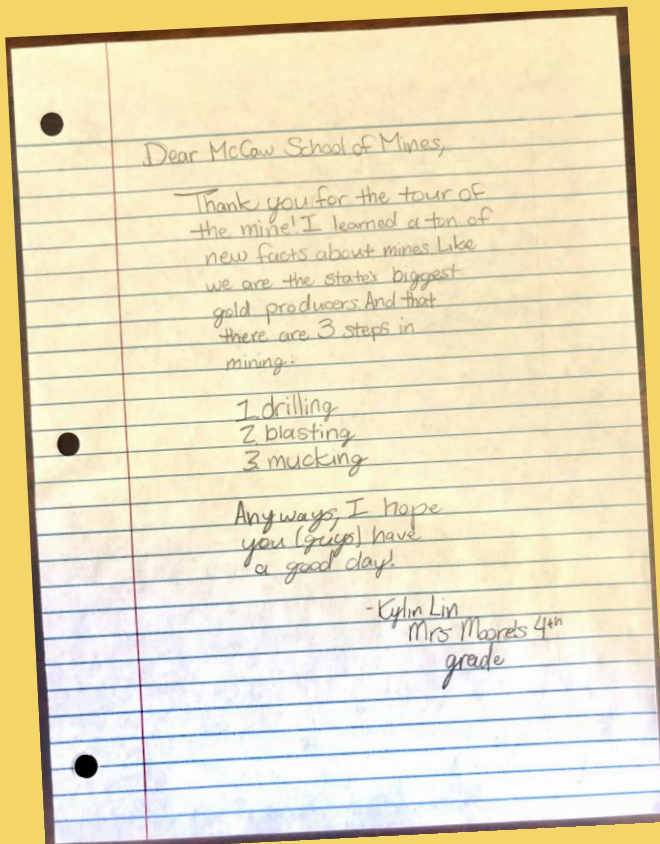 Dear McCaw School of Mines,
Thank you for the tour of
the mine! I learned a ton of
new facts about mines. Like
we are the state's biggest
gold producers. And that
there are 3 steps in
mining:
1. drilling
2. blasting
3. mucking
Anyways, I hope
you (guys) have
a good day!
-Kylin Lin
Mrs Moore's 4th
grade